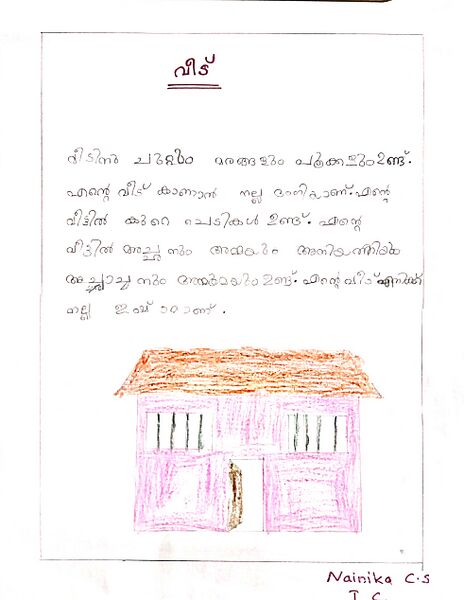 വീട്
വീടിനു ചുറ്റും മരങ്ങളും പൂക്കളും ഉണ്ട്.
എന്റെ വീട് കാണാൻ നല്ല ഭംഗിയാണ്. എന്റെ
വീട്ടിൽ കുറെ ചെടികൾ ഉണ്ട്. എന്റെ
വീട്ടിൽ അച്ഛനും അമ്മയും അനിയത്തിയും
അച്ഛാച്ഛനും അമ്മമയും ഉണ്ട്. എന്റെ വീട് എനിക്ക്
നല്ല ഇഷ്ടമാണ്.
Nainika C.S
I C.